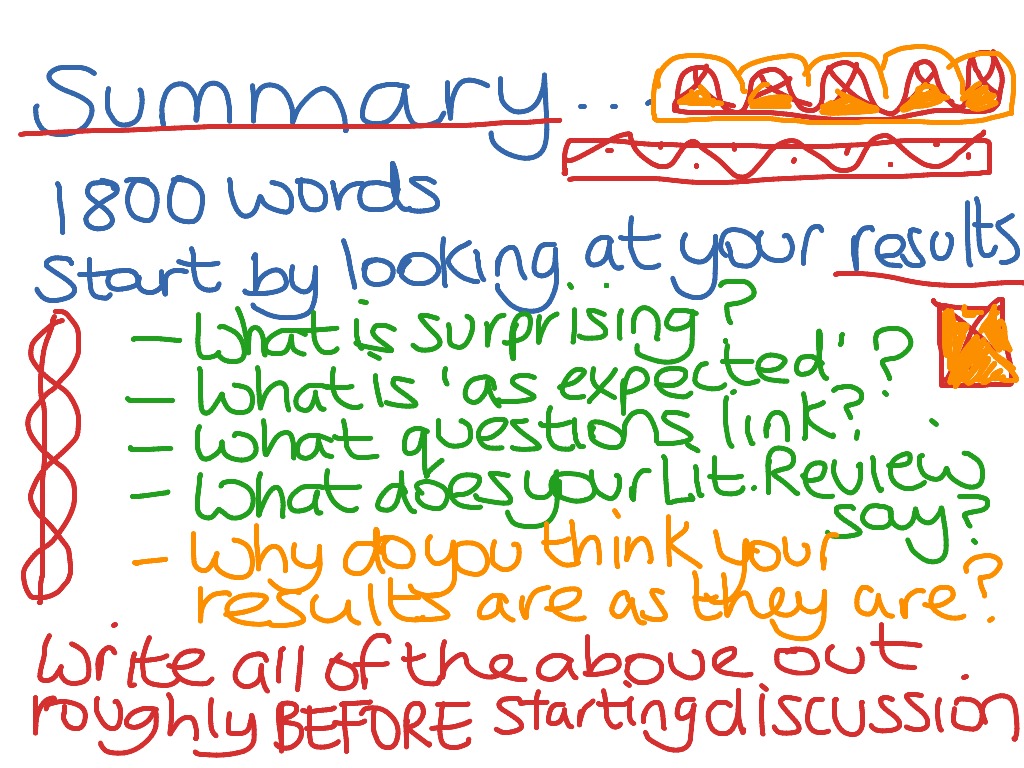 Summary...
1800 words
Start by looking at your results
- What is surprising?
- What is 'as expected'?
- What questions link?
- What does your Lit. Review
say?
- Why do you think your
results are as they are?
Write all of the above out
roughly BEFORE starting discussion